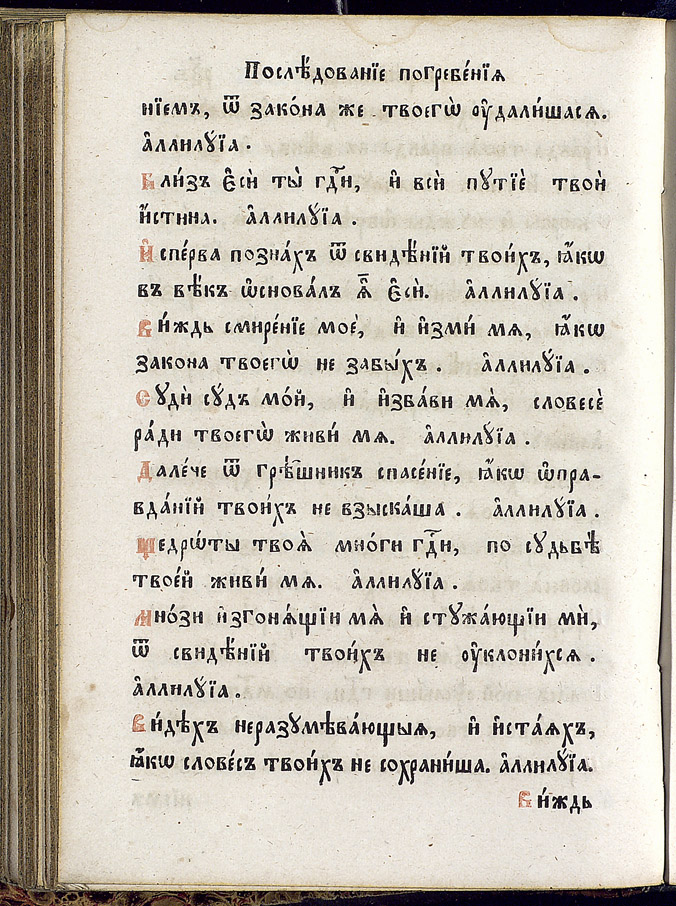 Послѣ́дованїе погребе́нїѧ
нїемъ, ѿ зако́на же твоегѡ̀ ᲂу҆дали́шасѧ.
а҆ллилꙋ́їа.
Бли́зъ є҆сѝ ты̀ гдⷭ҇и, и҆ всѝ пꙋтїѐ твоѝ
и҆́стина. а҆ллилꙋ́їа.
И҆спе́рва позна́хъ ѿ свидѣ́нїй твои́хъ, ꙗ҆́кѡ
въ вѣ́къ ѡ҆снова́лъ ѧ҆̀ є҆сѝ. а҆ллилꙋ́їа.
Ви́ждь смире́нїе моѐ, и҆ и҆змѝ мѧ, ꙗ҆́кѡ
закона твоегѡ̀ не забы́хъ. а҆ллилꙋ́їа.
Сꙋдѝ сꙋ́дъ мо́й, и҆ и҆зба́ви мѧ̀, словесѐ
ра́ди твоегѡ̀ живи́ мѧ. а҆ллилꙋ́їа.
Дале́че ѿ грѣ́шникъ спасе́нїе, ꙗ҆́кѡ ѡ҆пра-
вда́нїй твои́хъ не взыска́ша. а҆ллилꙋ́їа.
Щедрѡ́ты твоѧ̀ мнѡ́ги гдⷭ҇и, по сꙋдьбѣ̀
твое́й живи́ мѧ. а҆ллилꙋ́їа.
Мно́зи и҆згонѧ́щїи мѧ̀ и҆ стꙋжа́ющїи мѝ,
ѿ свидѣ́нїй твои́хъ не ᲂу҆клони́хсѧ.
а҆ллилꙋ́їа.
Ви́дѣхъ неразꙋмѣва́ющыѧ, и҆ и҆ста́ѧхъ,
ꙗ҆́кѡ слове́съ твои́хъ не сохрани́ша. а҆ллилꙋ́їа.
Ви́ждь